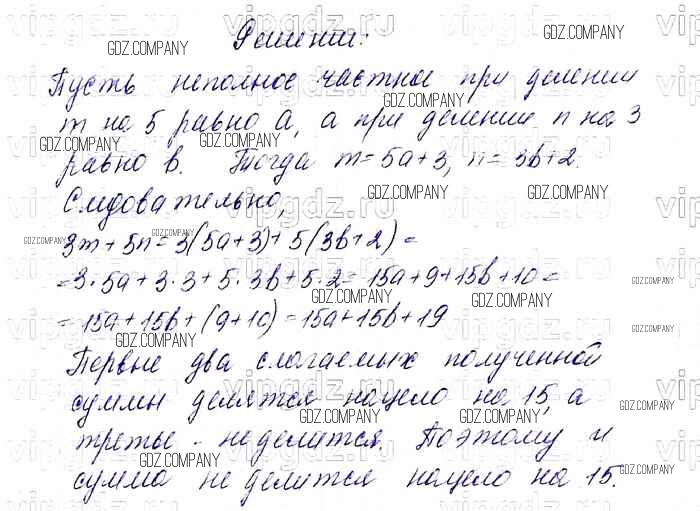 Решение:
Пусть неполное частное при делении
m на 5 равно a, а при делении n на 3
равно b. Тогда m=5a+3, n=3b+2.
Следовательно,
3m+5n=3(5a+3)+5(3b+2)=
=3·5a+3·3+5·3b+5·2=15a+9+15b+10=
=15a+15b+(9+10)=15a+15b+19
Первые два слагаемых полученной
суммы делятся нацело на 15, а
третье - не делится. Поэтому и
сумма не делится нацело на 15.